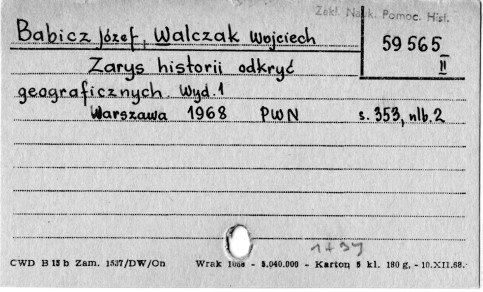 Zakł. Nauk. Pomoc. Hist.
Babicz Józef, Walczak Wojciech
59 565
II
Zarys historii odkryć
geograficznych. Wyd. 1
Warszawa 1968 PWN s. 353, nlb. 2
CWD B 15 b Zam. 1537/DW/On Wrak 1088 - 5.040.000 - Karton 5 kl. 180 g, - 10.XII.68.-